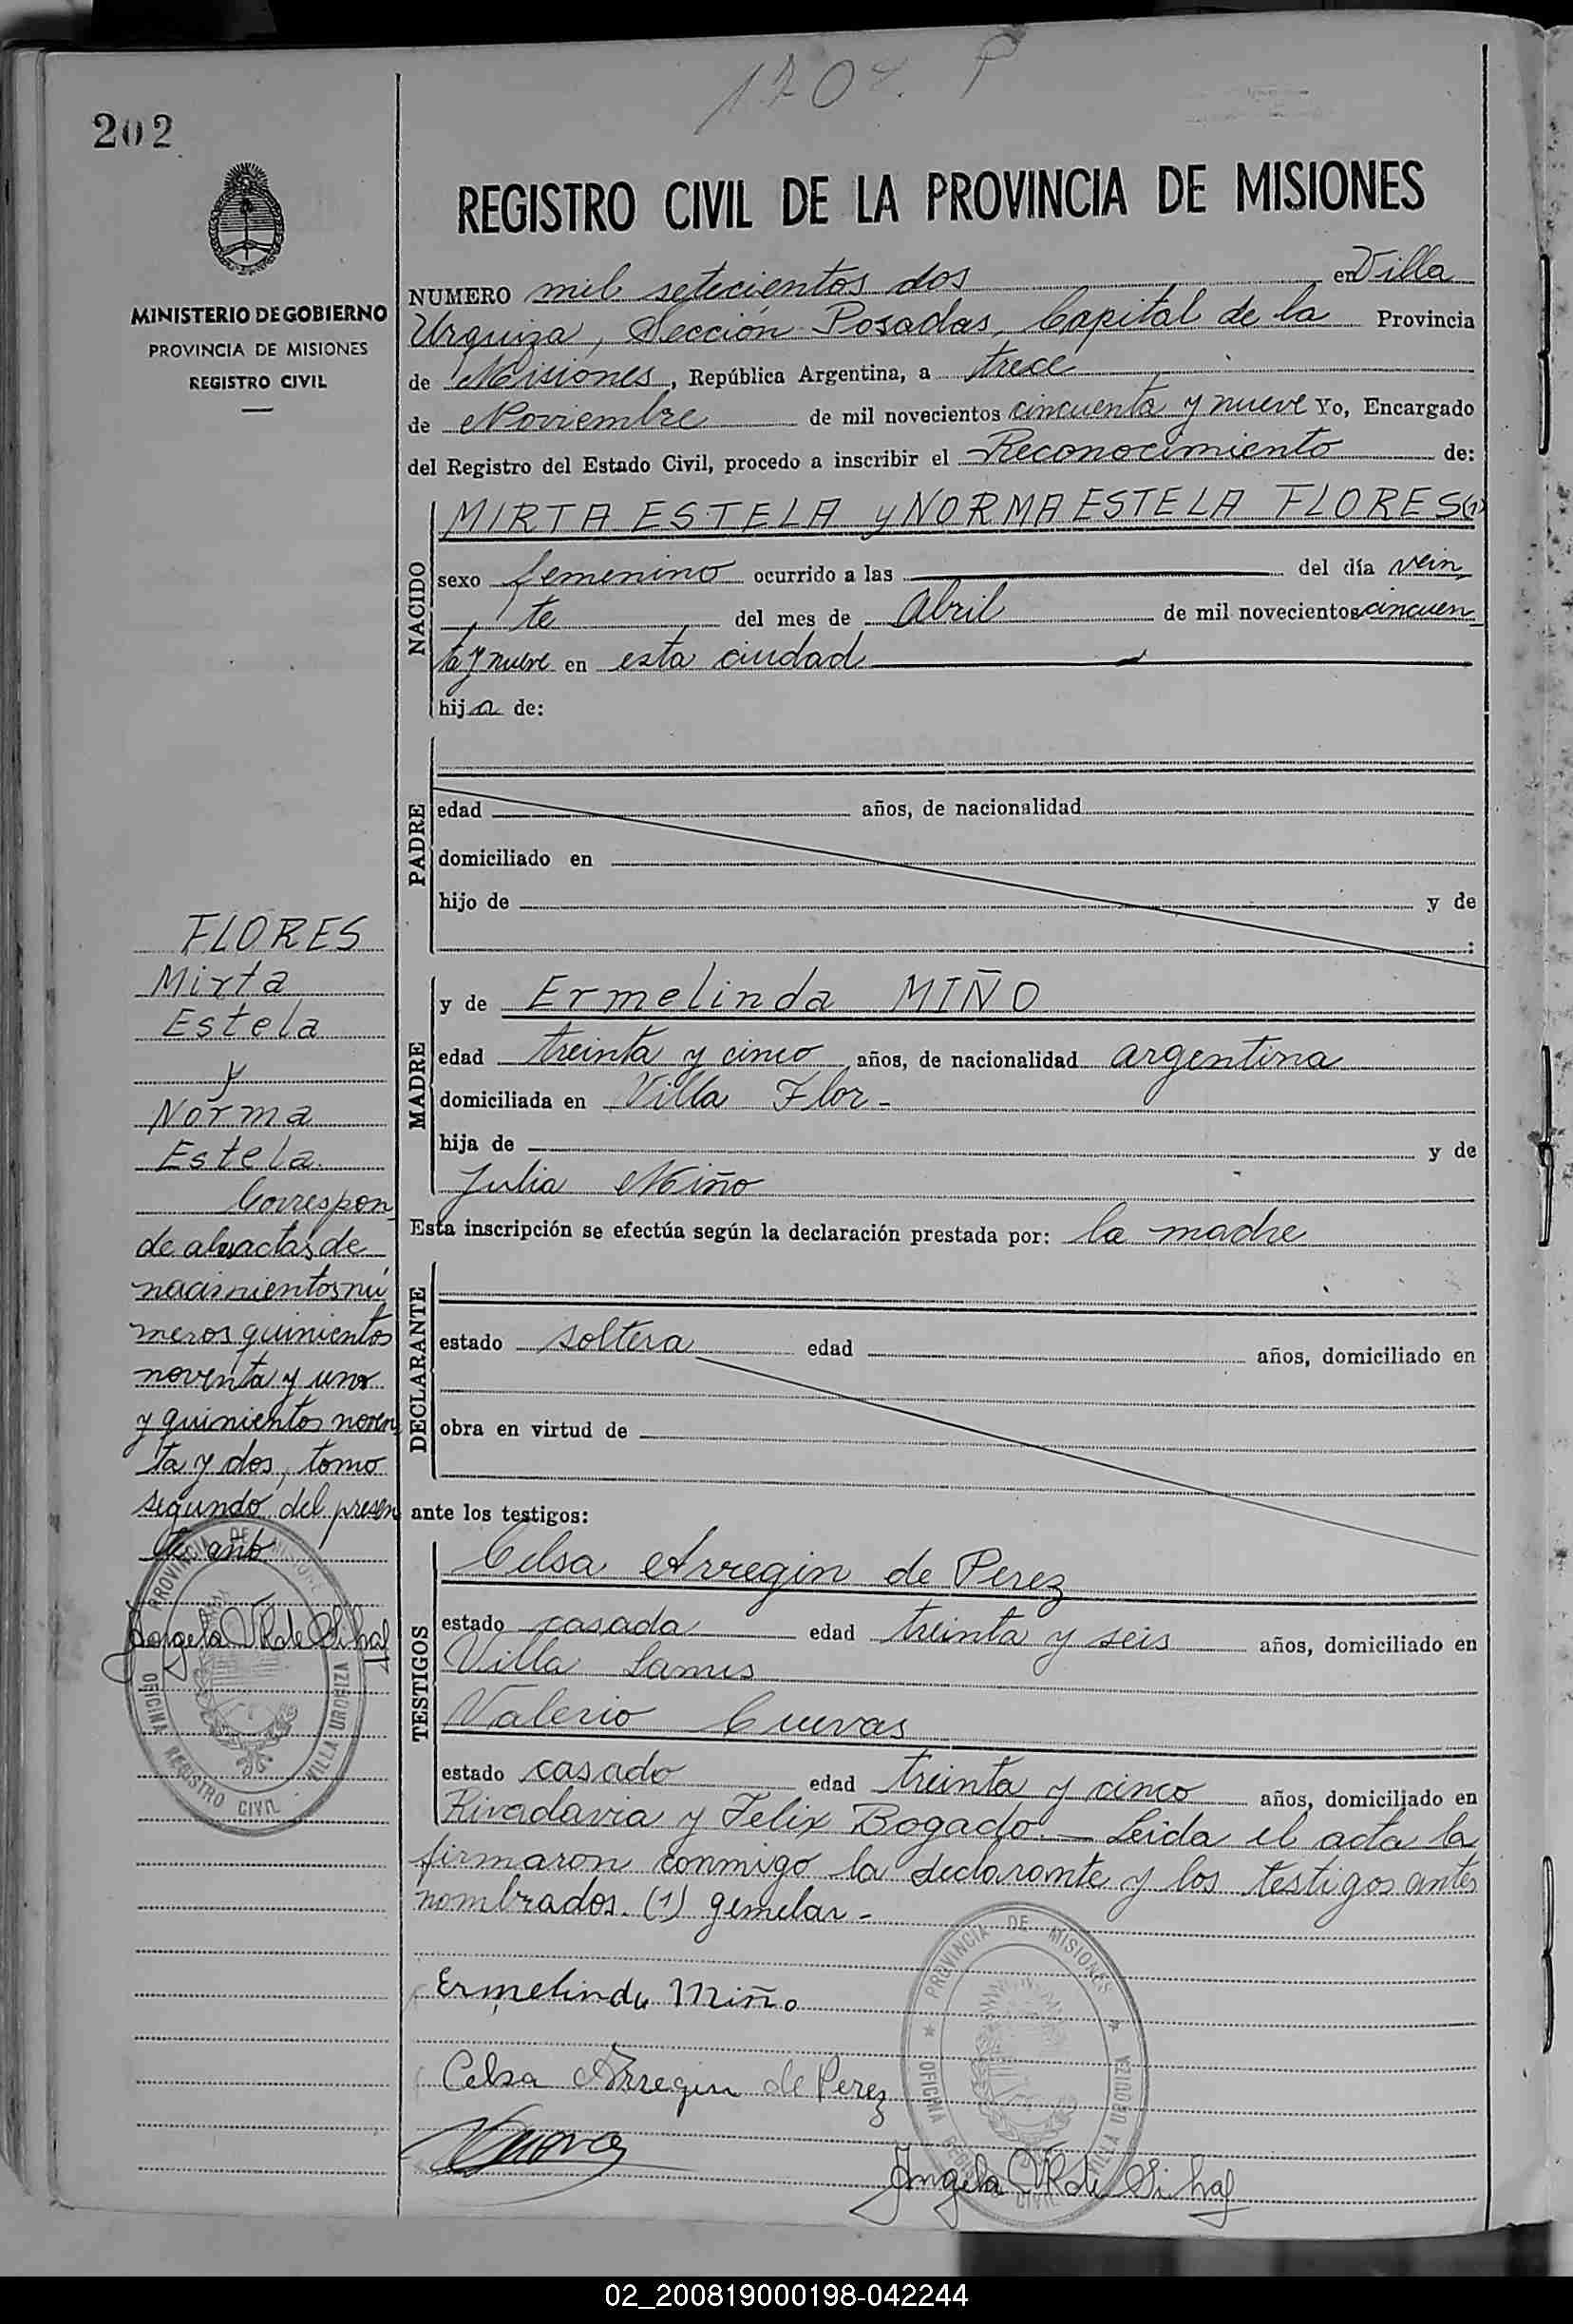 1702. P
202
MINISTERIO DE GOBIERNO
PROVINCIA DE MISIONES
REGISTRO CIVIL
REGISTRO CIVIL DE LA PROVINCIA DE MISIONES
NUMERO mil setecientos dos en Villa
Urquiza, Sección Posadas, Capital de la Provincia
de Misiones, República Argentina, a trece
de Noviembre de mil novecientos cincuenta y nueve Yo, Encargado
del Registro del Estado Civil, procedo a inscribir el Reconocimiento de:
NACIDO
MIRTA ESTELA y NORMA ESTELA FLORES (1)
sexo femenino ocurrido a las del día vein
te del mes de Abril de mil novecientos cincuen
ta y nueve en esta ciudad
hija de:
PADRE
edad años, de nacionalidad
domiciliado en
hijo de y de
:
MADRE
y de Ermelinda MIÑO
edad treinta y cinco años, de nacionalidad argentina
domiciliada en Villa Flor-
hija de y de
Julia Miño
Esta inscripción se efectúa según la declaración prestada por: la madre
DECLARANTE
estado soltera edad años, domiciliado en
obra en virtud de
ante los testigos:
TESTIGOS
Celsa Arregin de Perez
estado casada edad treinta y seis años, domiciliado en
Villa Lanus
Valerio Cuevas
estado casado edad treinta y cinco años, domiciliado en
Rivadavia y Felix Bogado.— Leida el acta la
firmaron conmigo la declarante y los testigos antes
nombrados. (1) gemelar-
Ermelinda Miño
Celsa Arregin de Perez
PROVINCIA DE MISIONES
OFICINA REGISTRO CIVIL VILLA URQUIZA
FLORES
Mirta
Estela
y
Norma
Estela.
Correspon
de a las actas de
nacimientos nú
meros quinientos
noventa y uno
y quinientos noven
ta y dos, tomo
segundo del presen
te año
PROVINCIA DE MISIONES
OFICINA REGISTRO CIVIL - VILLA URQUIZA
02_200819000198-042244